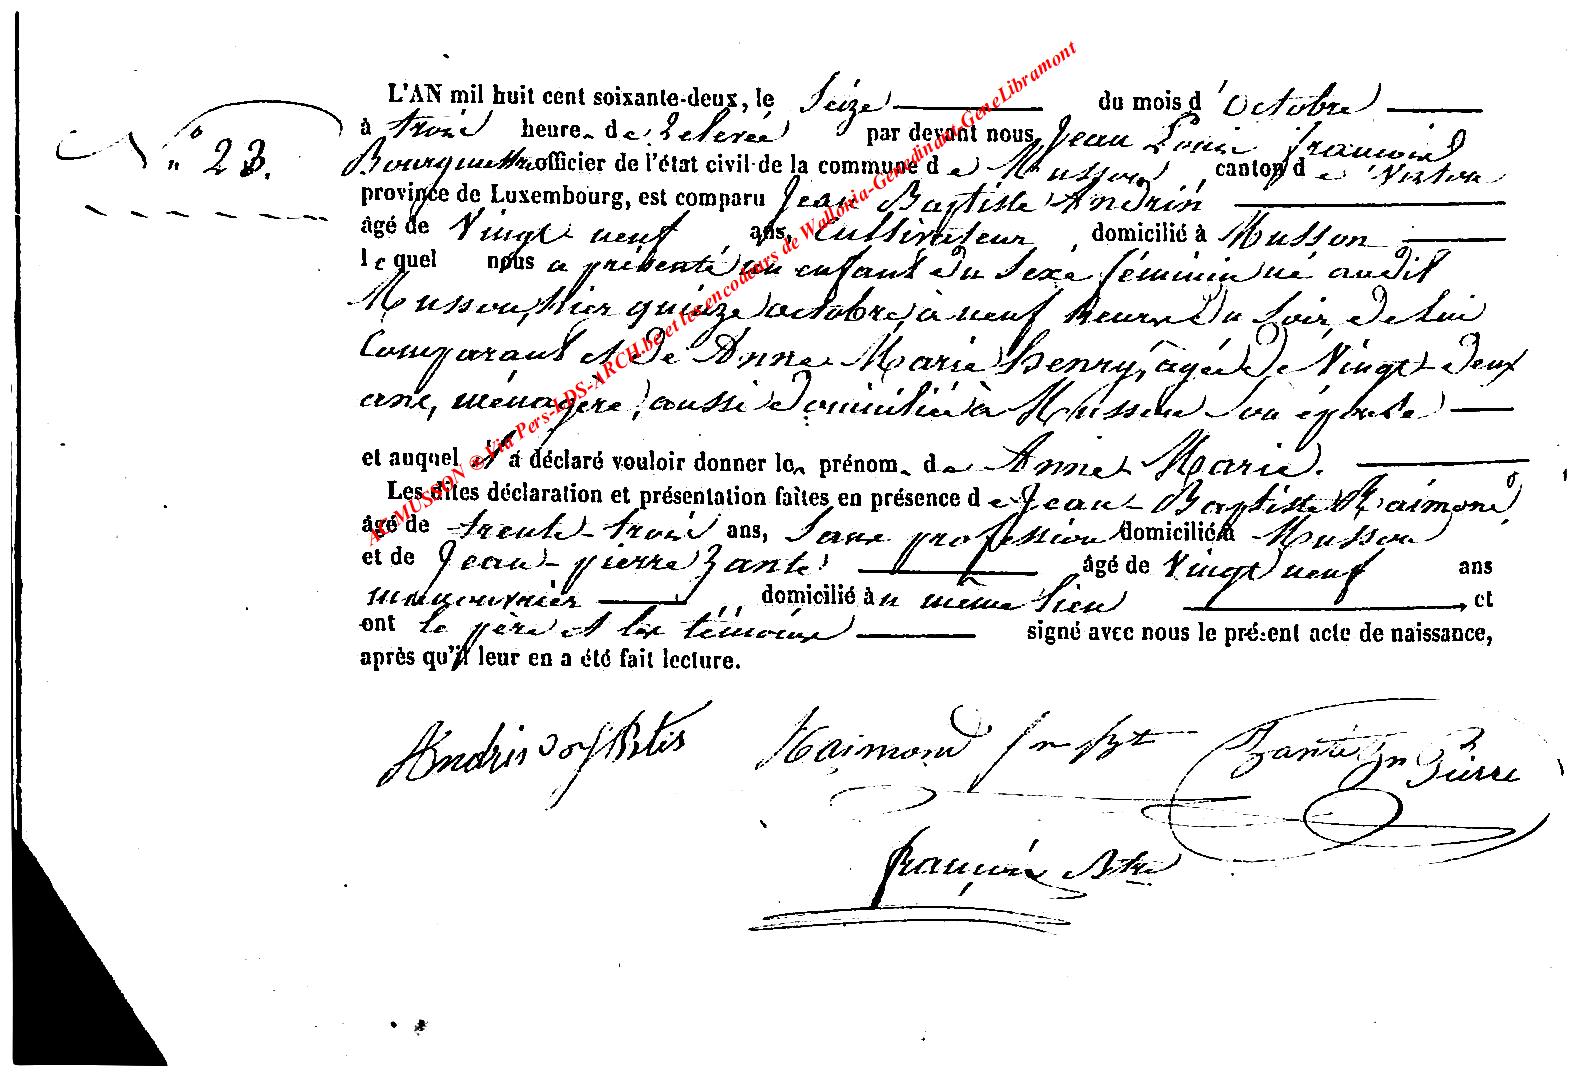 L'AN mil huit cent soixante-deux, le Seize du mois d'Octobre
N° 23.
à trois heures de Relevée par devant nous, Jean Louis François
Bourgmestre officier de l'état civil de la commune de Musson, canton de Virton
province de Luxembourg, est comparu Jean Baptiste Andrin
âgé de Vingt-neuf ans, Cultivateur, domicilié à Musson
lequel nous a présenté un enfant du Sexe féminin né audit
Musson, hier quinze octobre, à neuf heures du Soir, de lui
Comparant et de Anne Marie Henry, agée de Vingt-deux
ans, ménagère, aussi domiciliée à Musson son épouse
et auquel il a déclaré vouloir donner les prénoms de Anne-Marie.
Les dites déclaration et présentation faites en présence de Jean-Baptiste Raimond,
âgé de trente-trois ans, Sans profession domicilié à Musson
et de Jean-pierre Zante âgé de Vingt neuf ans
manouvrier domicilié au même lieu, et
ont le père et les témoins signé avec nous le présent acte de naissance,
après qu'il leur en a été fait lecture.
Andrin Raimond Jn Bte Zante Jn Pierre
François Btre
AC MUSSON ® Via Pers-LDS-ARCH.be et les encodeurs de Wallonia-Genedinant-GeneLibramont